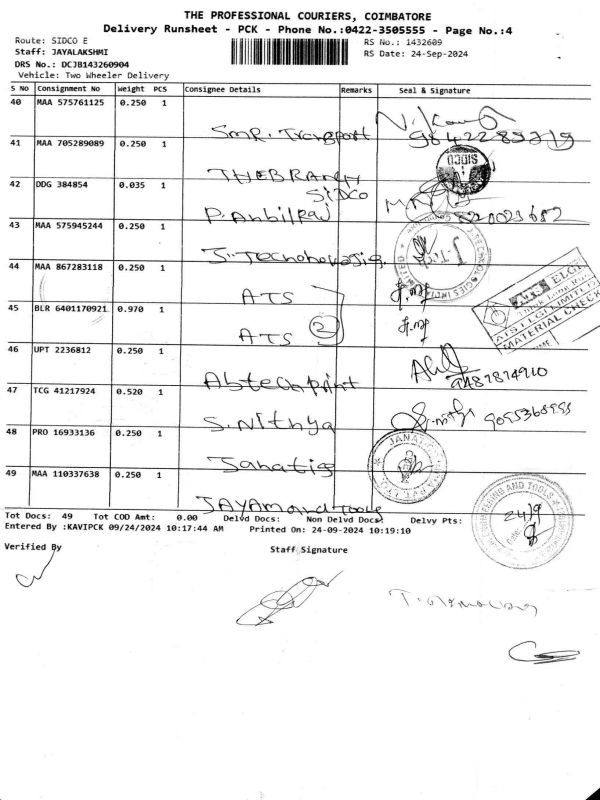 THE PROFESSIONAL COURIERS, COIMBATORE
Delivery Runsheet - PCK - Phone No.:0422-3505555 - Page No.:4
Route: SIDCO E
RS No.: 1432609
Staff: JAYALAKSHMI
RS Date: 24-Sep-2024
DRS No.: DCJB143260904
Vehicle: Two Wheeler Delivery
S No Consignment No Weight PCS Consignee Details Remarks Seal & Signature
40 MAA 575761125 0.250 1
SMR. Transport
41 MAA 705289089 0.250 1
THEBRANCH
SIDCO
42 DDG 384854 0.035 1
SIDCO
P. Anbilraj
43 MAA 575945244 0.250 1
44 MAA 867283118 0.250 1
ATS
45 BLR 6401170921 0.970 1
ATS
2
ATS ELGI LIMITED
MATERIAL CHECK
46 UPT 2236812 0.250 1
Abtechprint
9487874910
47 TCG 41217924 0.520 1
S. Nithya
9095368995
48 PRO 16933136 0.250 1
Janatics
49 MAA 110337638 0.250 1
JAYAM and Tools
24/9
Tot Docs: 49 Tot COD Amt: 0.00 Delvd Docs: Non Delvd Docs: Delvy Pts:
Entered By :KAVIPCK 09/24/2024 10:17:44 AM Printed On: 24-09-2024 10:19:10
Verified By Staff Signature